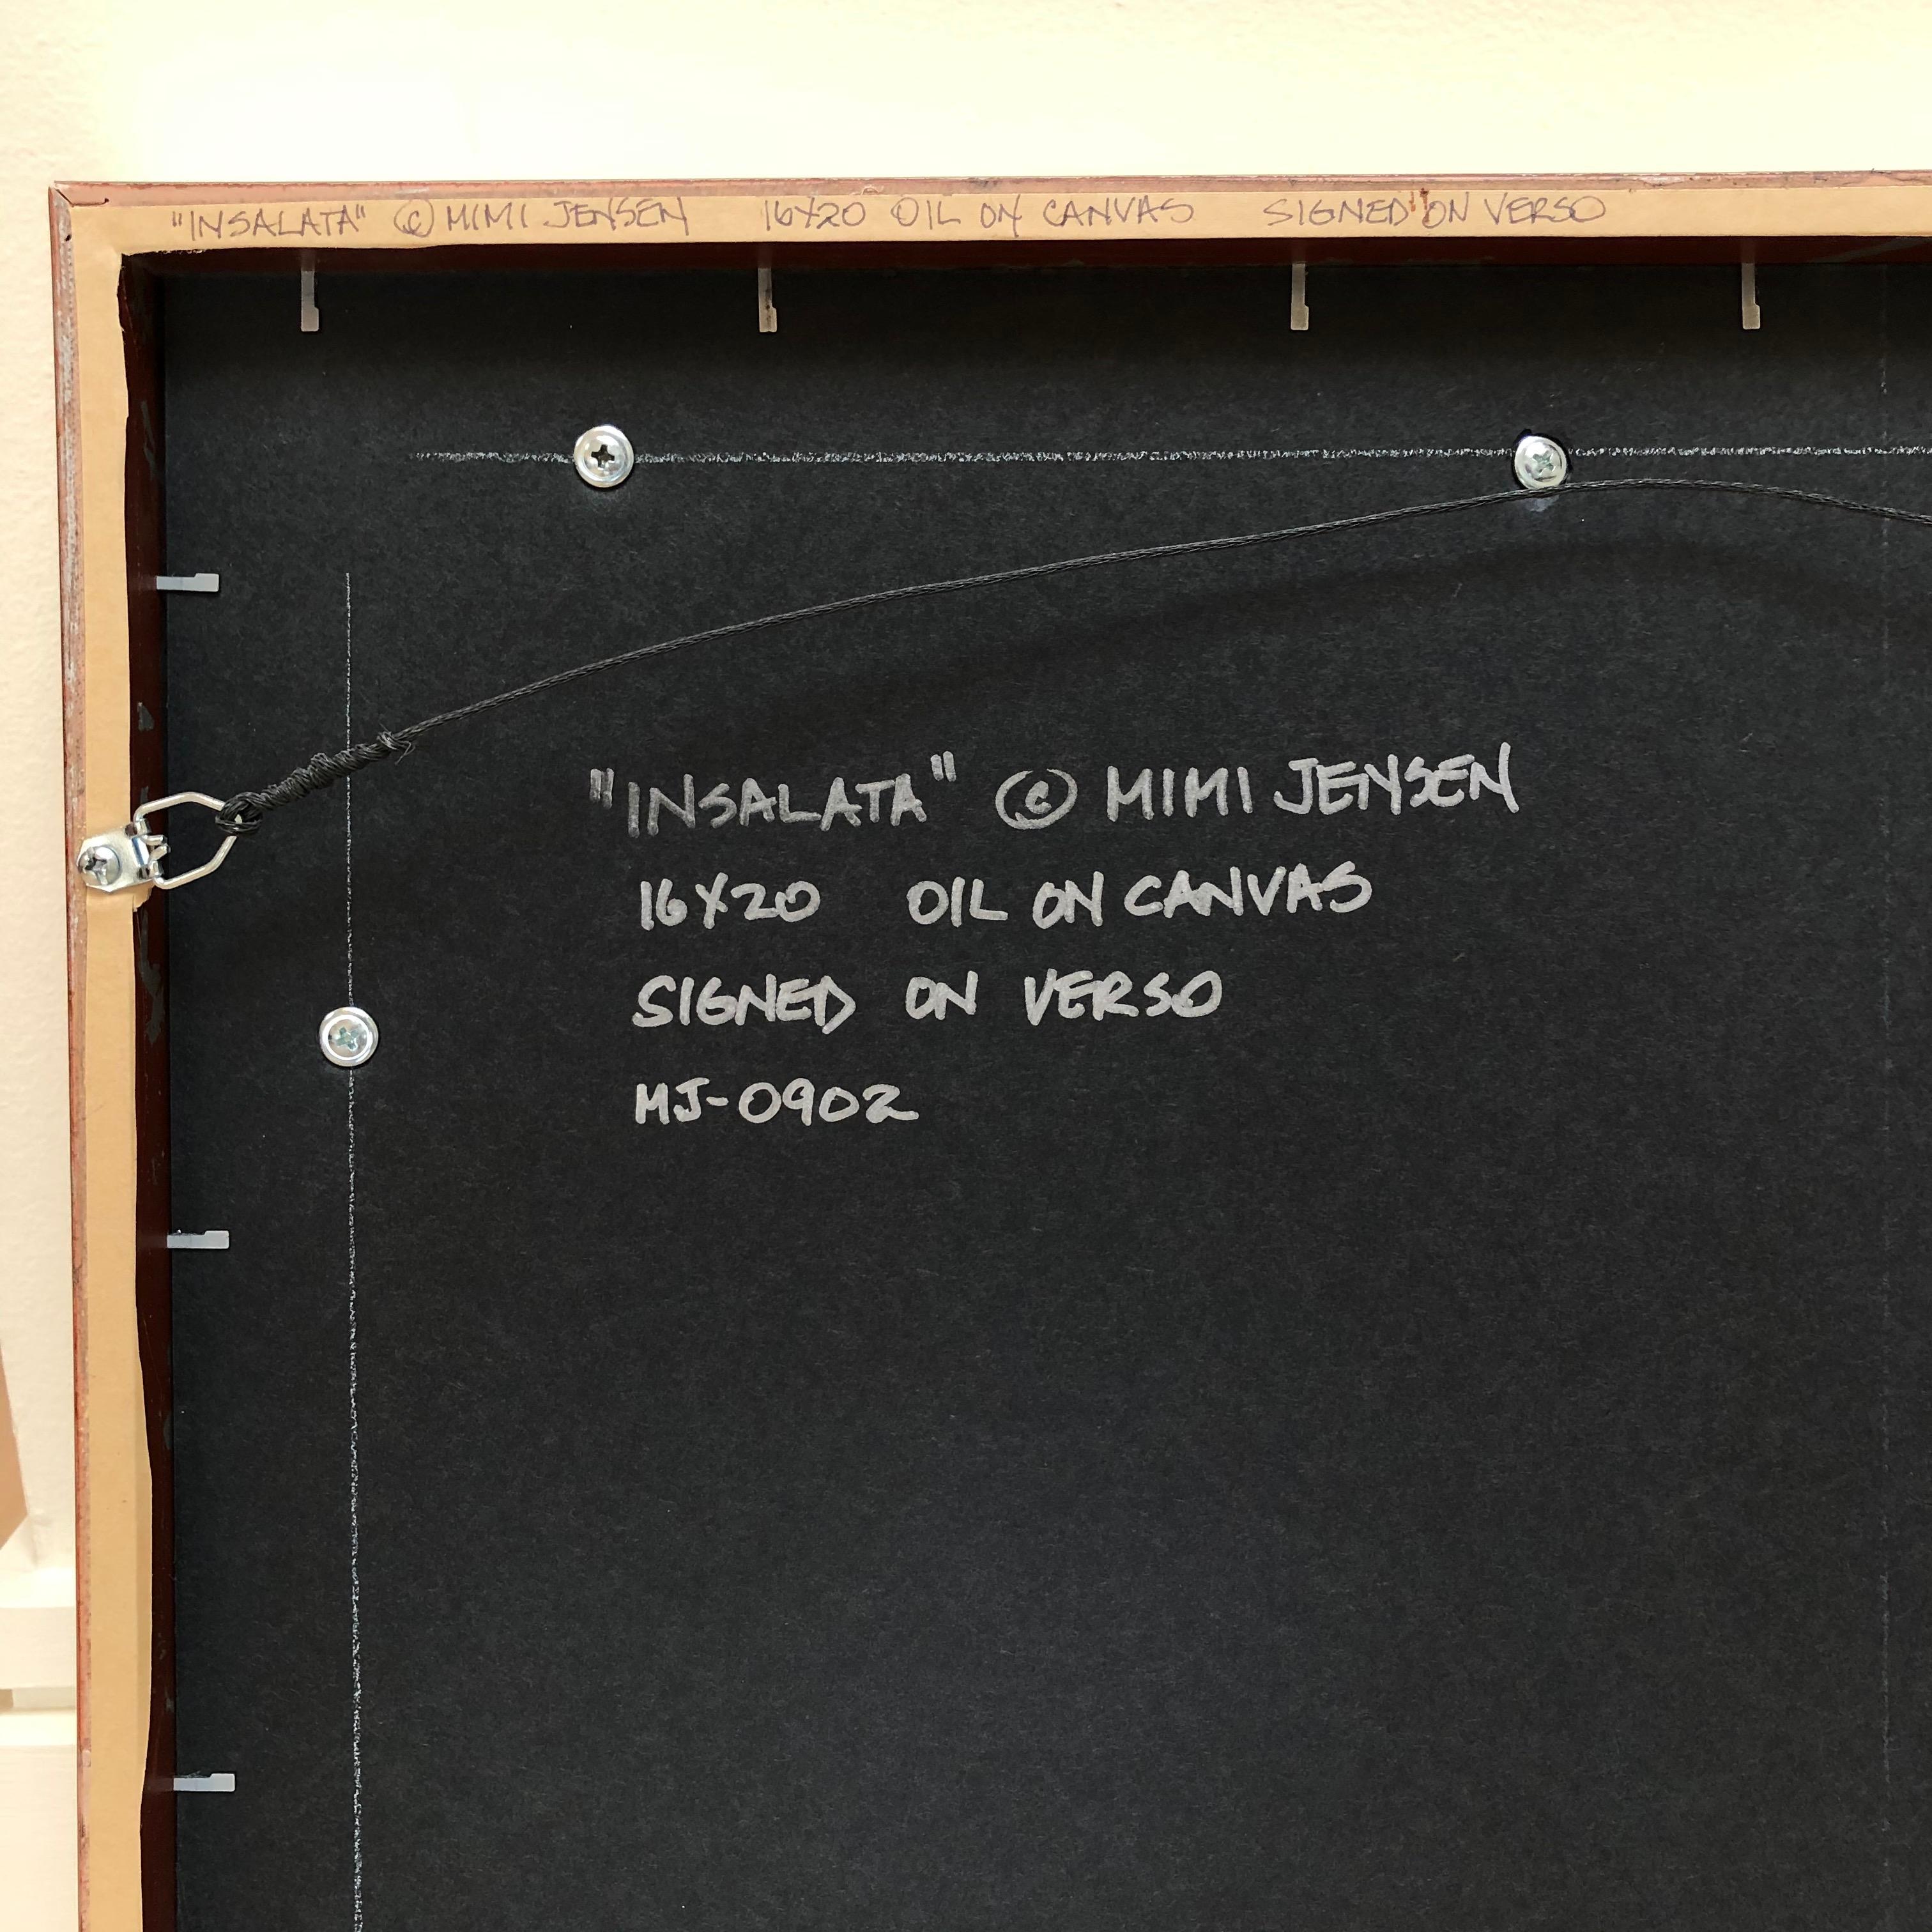 "INSALATA" © MIMI JENSEN 16X20 OIL ON CANVAS SIGNED ON VERSO
"INSALATA" © MIMI JENSEN
16X20 OIL ON CANVAS
SIGNED ON VERSO
MJ-0902